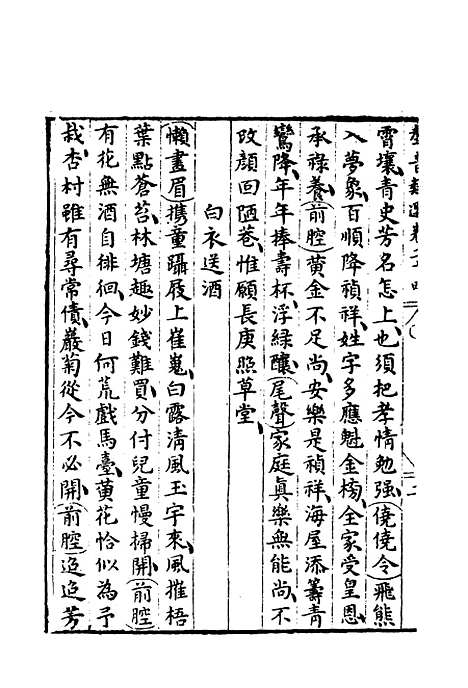 霄壤、青史芳名怎上、也須把孝情勉强、(僥僥令)飛熊
入夢、象百順降禎祥、姓字多應魁金榜、全家受皇恩、
承祿養、(前腔)黄金不足尚、安樂是禎祥、海屋添籌青
鸞降、年年捧壽杯、浮綠釀、(尾聲)家庭眞樂無能尚、不
改顔回陋巷、惟願長庚照草堂、
白衣送酒
(懶畫眉)携童躡屐上崔嵬、白露清風玉宇來、風摧梧
葉點蒼苔、林塘趣妙錢難買、分付兒童慢掃開、(前腔)
有花無酒自徘徊、今日何荒戲馬臺、黄花恰似為予
栽、杏村雖有尋常債、嚴菊從今不必開、(前腔)迢迢芳